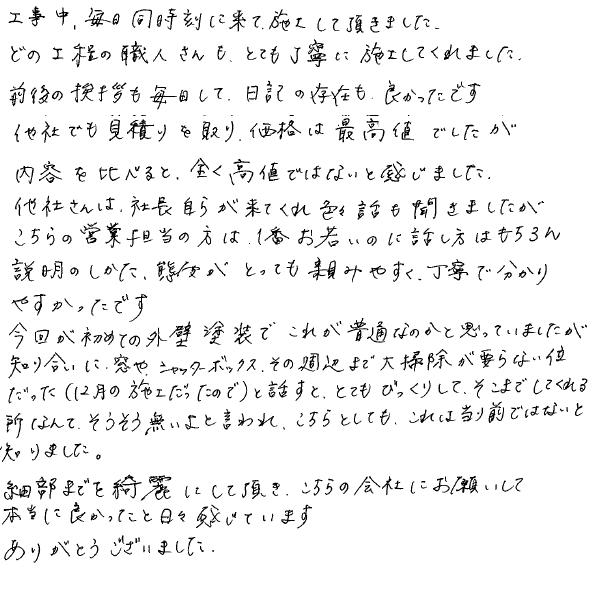 工事中、毎日同時刻に来て、施工して頂きました。
どの工程の職人さんも、とても丁寧に施工してくれました。
前後の挨拶も毎日して、日記の存在も、良かったです
他社でも見積りを取り、価格は最高値でしたが
内容を比べると、全く高値ではないと感じました。
他社さんは、社長自らが来てくれ色々話も聞きましたが
こちらの営業担当の方は、1番お若いのに話し方はもちろん
説明のしかた、態度がとっても親みやすく、丁寧で分かり
やすかったです
今回が初めての外壁塗装でこれが普通なのかと思っていましたが
知り合いに、窓や、シャッターボックス、その周辺まで大掃除が要らない位
だった(12月の施工だったので)と話すと、とてもびっくりして、そこまでしてくれる
所なんて、そうそう無いよと言われ、こちらとしても、これは当り前ではないと
知りました。
細部までを綺麗にして頂き、こちらの会社にお願いして
本当に良かったこと日々感じています
ありがとうございました。